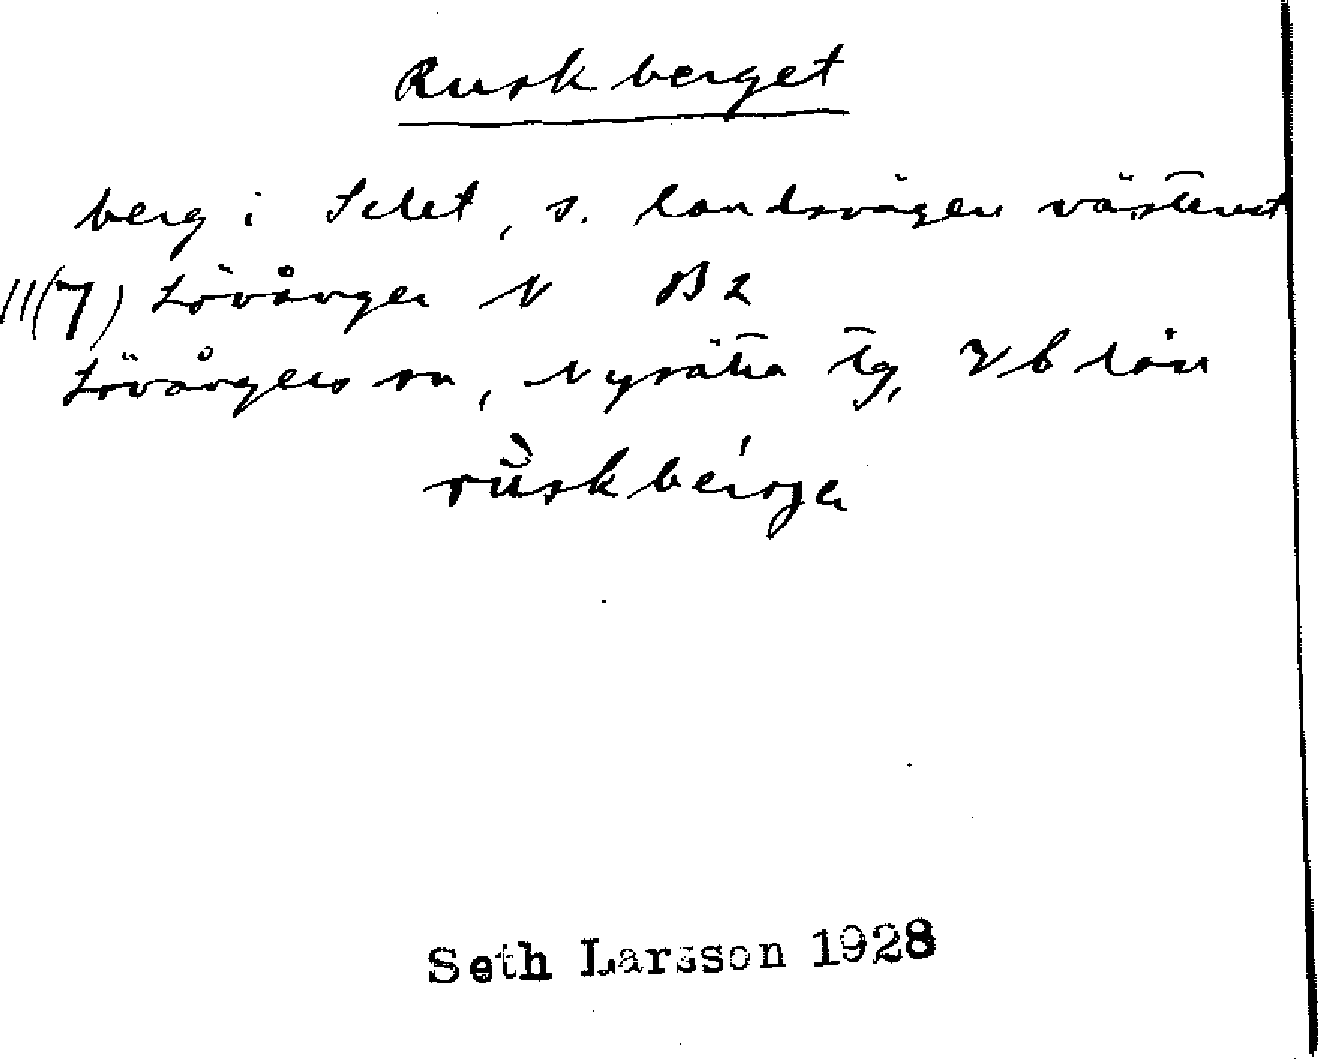 Ruskberget
berg i Selet, s. landsvägen västerut
11(7) Lövånger N B2
Lövångers sn, Nysätra tg, Vb län
Seth Larsson 1928